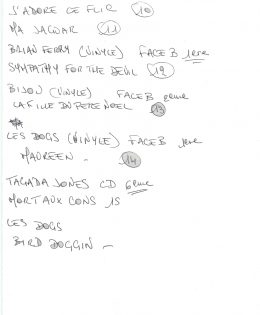 J'ADORE CE FLIR 10
MA JAGUAR 11
BRIAN FERRY (VINYLE) FACE B 1ere
SYMPATHY FOR THE DEVIL 12
BIJOU (VINYLE) FACE B 2eme
LA FILLE DU PERE NOEL 13
LES DOGS (VINYLE) FACE B 1ere
MAUREEN - 14
TAGADA JONES CD 6eme
MORT AUX CONS 15
LES DOGS
BIRD DOGGIN -